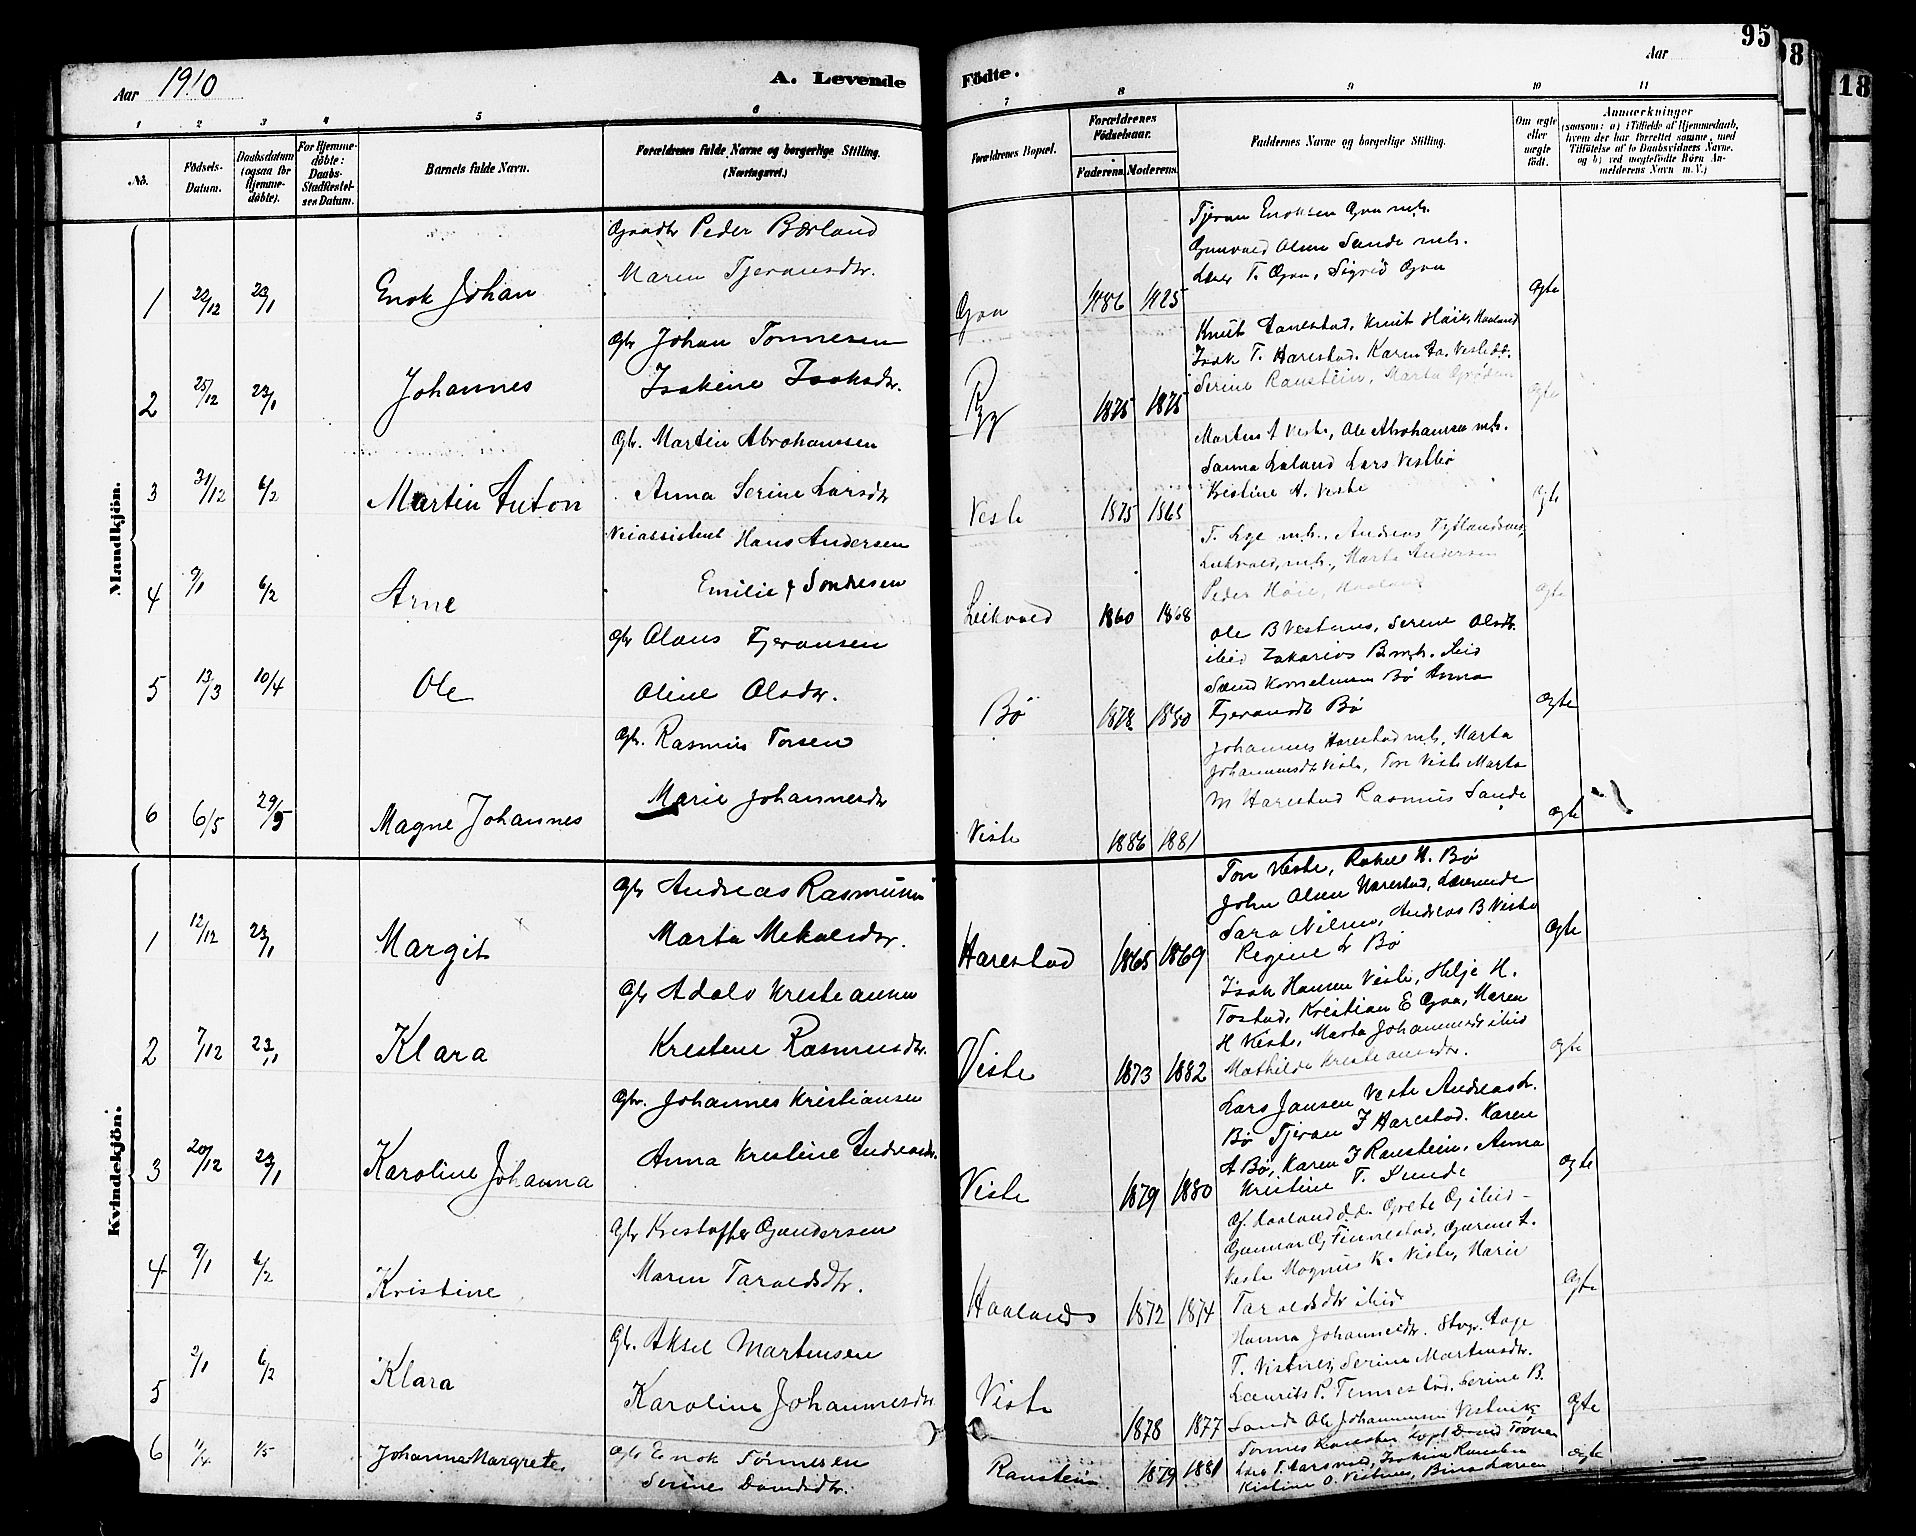 Aar 1910
A. Levende
Fødte.
Aar
95
98
118
1 2 3 4 5 6 7 8 9 10 11
No.
Fødsels-Datum.
Daabsdatum (ogsaa for Hjemmedøbte).
For Hjemmedøbte: Daabs-Stadfæstelses Datum.
Barnets fulde Navn.
Forældrenes fulde Navne og borgerlige Stilling. (Næringsvei.)
Forældrenes Bopæl.
Forældrenes Fødselsaar.
Faderens. Moderens.
Faddernes Navne og borgerlige Stilling.
Om ægte eller uægte født.
Anmærkninger
(saasom: a) i Tilfælde af Hjemmedaab, hvem der har forrettet samme, med Tilføielse af to Daabsvidners Navne, og b) ved uægtefødte Børn Anmelderens Navn m. V.)
Mandkjön.
1 22/12 23/1 Enok Johan
Gaardbr Peder Bærland
Maren Tjeransdtr.
Goa 1886
Tjeran Enoksen Goa mh.
Gunvald Olsen Sande mh.
Lars T. Goa, Sigrid Goa
Ægte
2 25/12 23/1 Johannes
Gbr Johan Tønnesen
Isakine Isaksdtr.
Ryg 1875 1875
Knut Harestad, Knut Høie, Haaland
Isak T. Harestad. Karen
Serine Ranstein, Marta Grødem
ægte
3 31/12 6/2 Martin Anton
Gbr. Martin Abrahamsen
Anna Serine Larsdtr
Viste 1875
Martin A Viste, Ole Abrahamsen mh.
Sanna Laland Lars Vestbø
Kristine A. Viste
Ægte
4 9/1 6/2 Arne
Veiassistent Hans Andersen
Emilie f Sondresen
Leikvold 1860 1868
T. Lye mh., Andreas
Leikvold, mh., Marta Andersen
Peder Høie, Haaland
ægte
5 13/3 10/4 Ole
Gbr Olaus Tjeransen
Oline Olsdtr.
Bø 1878 1880
Ole B Vestnes, Serine Olsdtr.
ibid Zakarias B mh. ibid
Svend Kornelius Bø Anna
Tjeransdtr Bø
ægte
6 6/5 29/5 Magne Johannes
Gbr. Rasmus Torsen
Marie Johannesdtr
Viste 1886 1881
Johannes Harestad mh, Marta
Johannesdtr Viste, Tore Viste Marta
M Harestad Rasmus Sande
ægte
Kvindekjön.
1 12/12 23/1 Margit
Gbr Andreas Rasmussen
Marta Mikalsdtr.
Harestad 1865 1869
Tore Viste, Rakel H. Bø
John Olsen Harestad, Lærerinde
Sara Nilsen, Andreas B Viste
Regine L Bø
ægte
2 7/12 23/1 Klara
Gbr Adolv Kristiansen
Kristine Rasmusdtr.
Viste 1873 1882
Isak Hansen Viste, Helje H.
Tostad, Kristian E Goa, Maren
H Viste, Marta Johannesdtr ibid
Mathilde Kristiansdtr.
ægte
3 20/12 23/1 Karoline Johanna
Gbr. Johannes Kristiansen
Anna Kristine Andreasdtr.
Viste 1879 1880
Lars Jansen Viste Andreas L.
Bø Tjeran I Harestad. Karen
A Bø, Karen I Ranstein, Anna
Kristine T. Sunde
ægte
4 9/1 6/2 Kristine
Gbr Kristoffer Gundersen
Maren Taraldsdtr.
Haaland 1872 1874
G. Haaland Grete G ibid
Gunnar G Finnestad, Gurine L.
Viste Magnus K. Viste, Marie
Taraldsdtr ibid
Ægte
5 2/1 6/2 Klara
Gbr. Aksel Martinsen
Karoline Johannesdtr
Viste 1878 1877
Hanna Johannesdtr. Stvgr. Aage
T. Vistnes, Serine Martinsdtr.
Laurits P. Tennestad. Serine B.
Sande Ole Johannesen Vestvik
Ægte
6 11/4 1/5 Johanna Margrete
Gbr Enok Tønnesen
Serine Davidsdtr.
Ranstein 1879 1881
Tønnes Harestad David Tønnes
Lars T. Aarsvold, Isakine Ranstein
Kistine O. Vistnes,
ægte